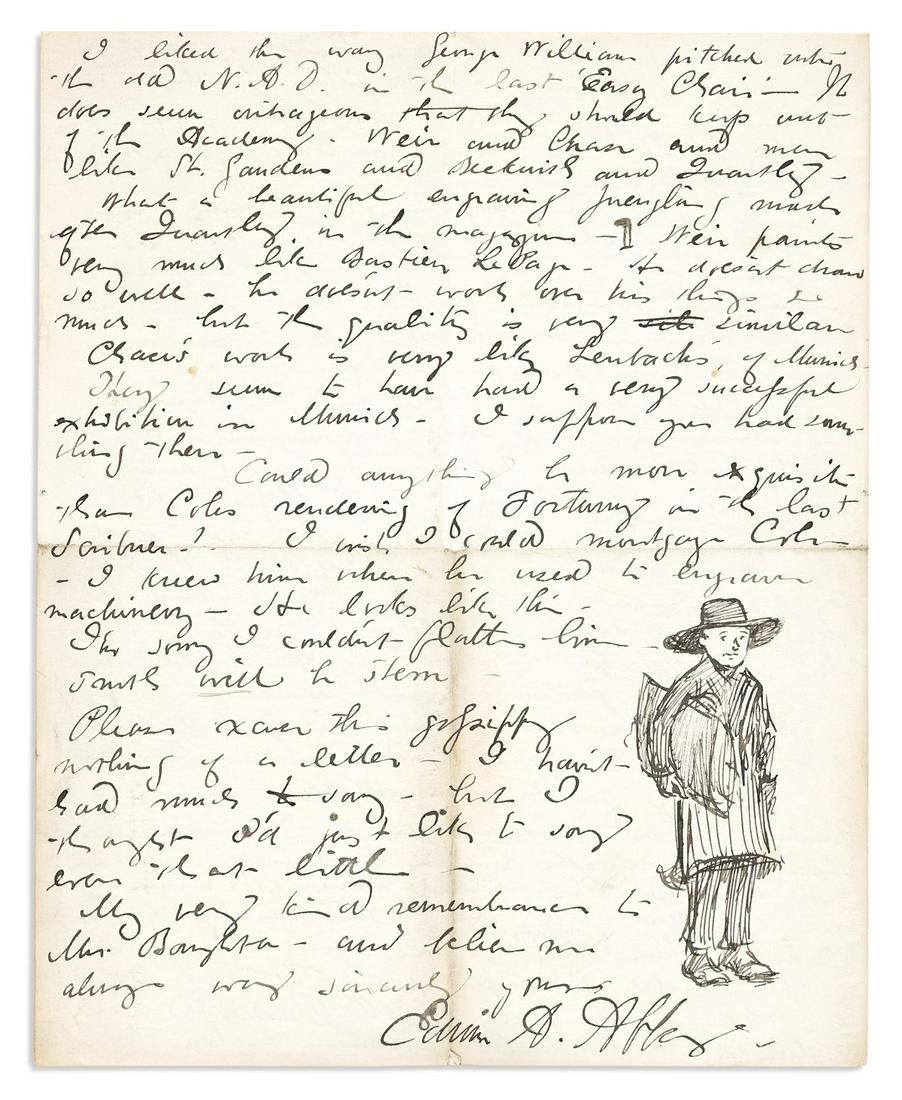 I liked the way George William pitched into
the old N.A.D. in the last Easy Chair — It
does seem outrageous that they should keep out
of the Academy - Weir and Chase and men
like St. Gaudens and Beckwith and Duveneck -
What a beautiful engraving Juengling made
after Duveneck in the magazine — Weir paints
very much like Bastien LePage - He doesn't draw
so well - he doesn't work over his things so
much - but the quality is very similar
Chase's work is very like Lenbach's, of Munich.
They seem to have had a very successful
exhibition in Munich - I suppose you had some-
thing there -
Could anything be more exquisite
than Coles rendering of Fortuny in the last
Scribner! I wish I could mortgage Cole
- I knew him when he used to engrave
machinery - He looks like this -
I'm sorry I couldn't flatter him -
Truth will be stern -
Please excuse this gossippy
nothing of a letter - I havn't
had much to say - but I
thought I'd just like to say
even that little -
My very kind remembrances to
Mrs. Boughton - and believe me
always very sincerely yours
Edwin A. Abbey -